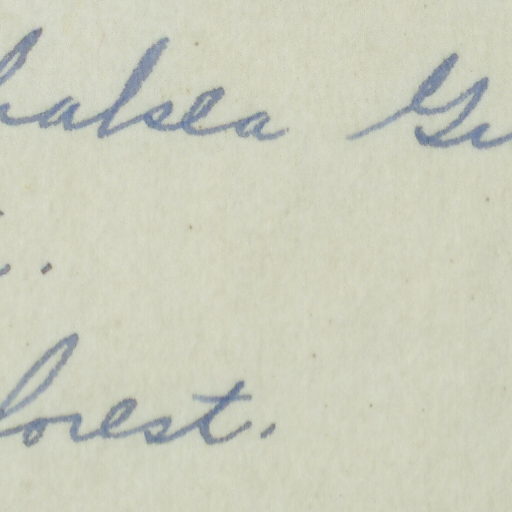 halsea Gr
.
forest.